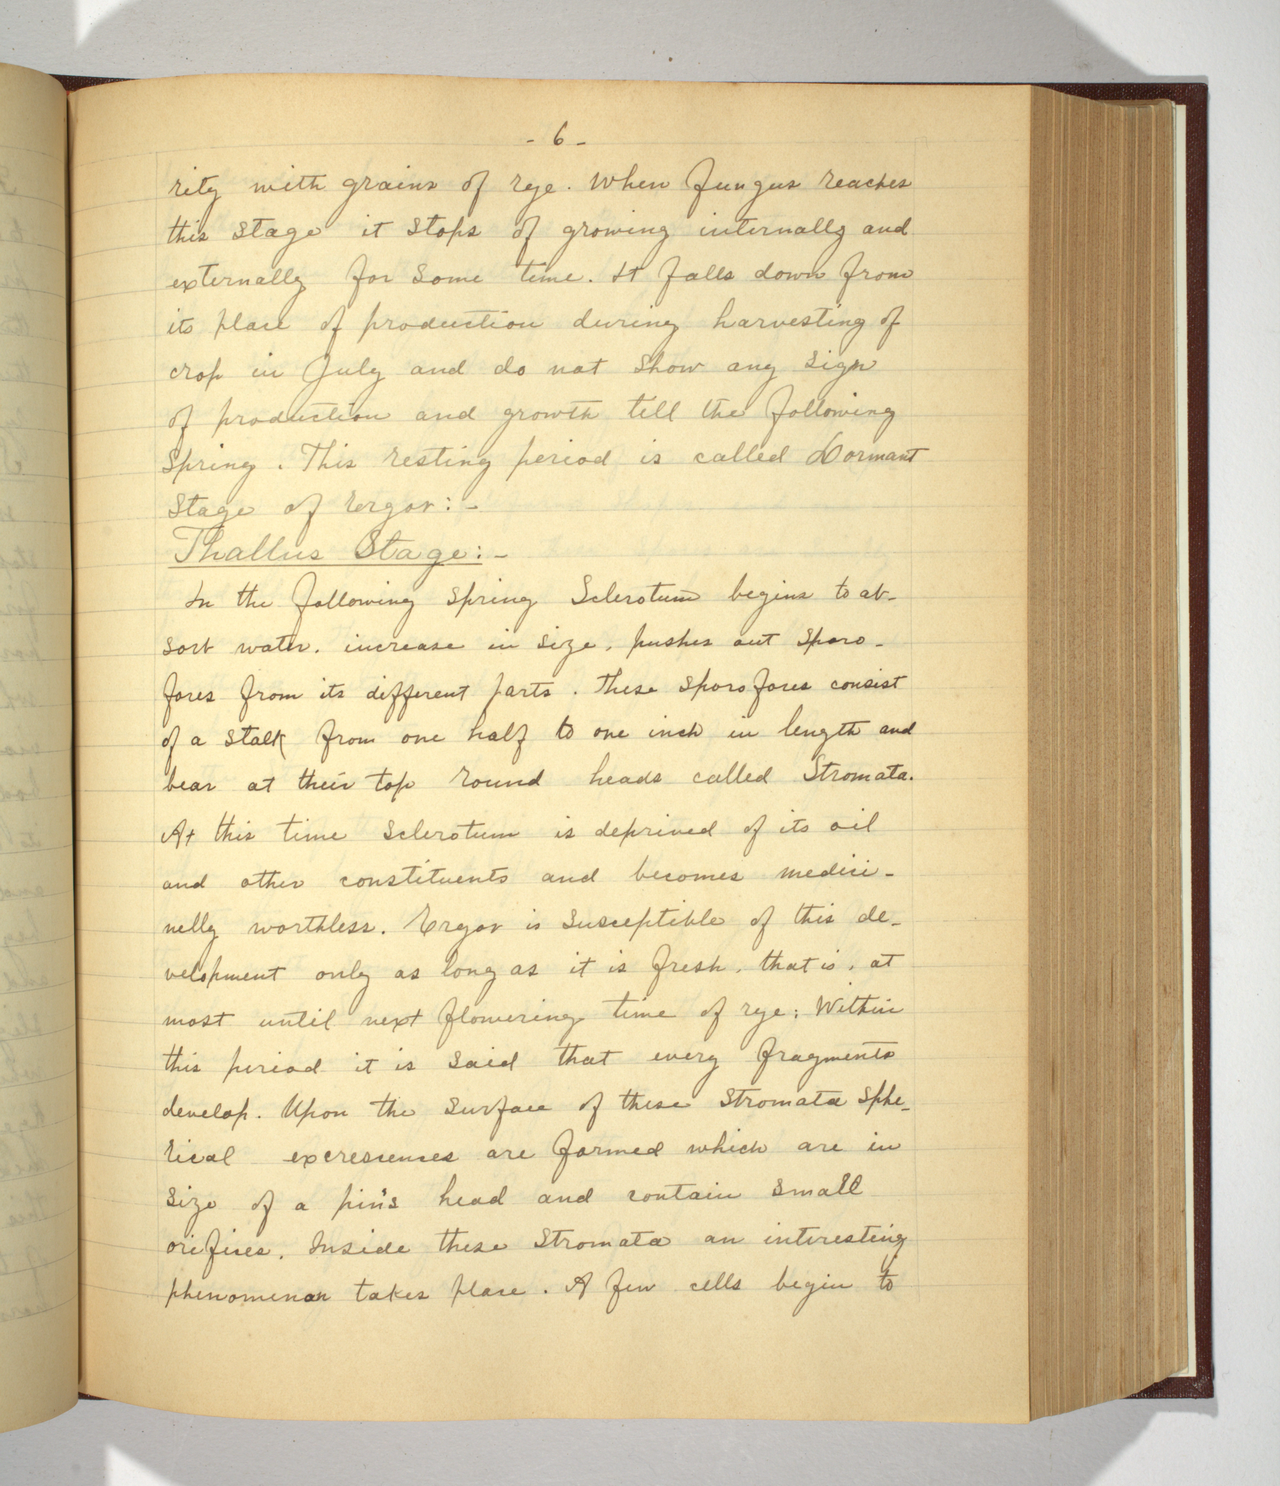 - 6 -
rity with grains of rye. When fungus reaches
this stage it stops of growing internally and
externally for some time. It falls down from
its place of production during harvesting of
crop in July and do not show any sign
of production and growth till the following
spring. This resting period is called Dormant
stage of Ergot:-
Thallus Stage:-
In the following spring Sclerotum begins to ab-
sorb water. increase in size, pushes out sporo-
fores from its different parts. These sporofores consist
of a stalk from one half to one inch in length and
bear at their top round heads called Stromata.
At this time Sclerotum is deprived of its oil
and other constituents and becomes medici-
nelly worthless. Ergot is susceptible of this de-
velopment only as long as it is fresh, that is, at
most until next flowering time of rye; Within
this period it is said that every fragments
develop. Upon the surface of these Stromata sphe-
rical excrescences are formed which are in
size of a pin's head and contain small
orifices. Inside these Stromata an interesting
phenomenon takes place. A few cells begin to